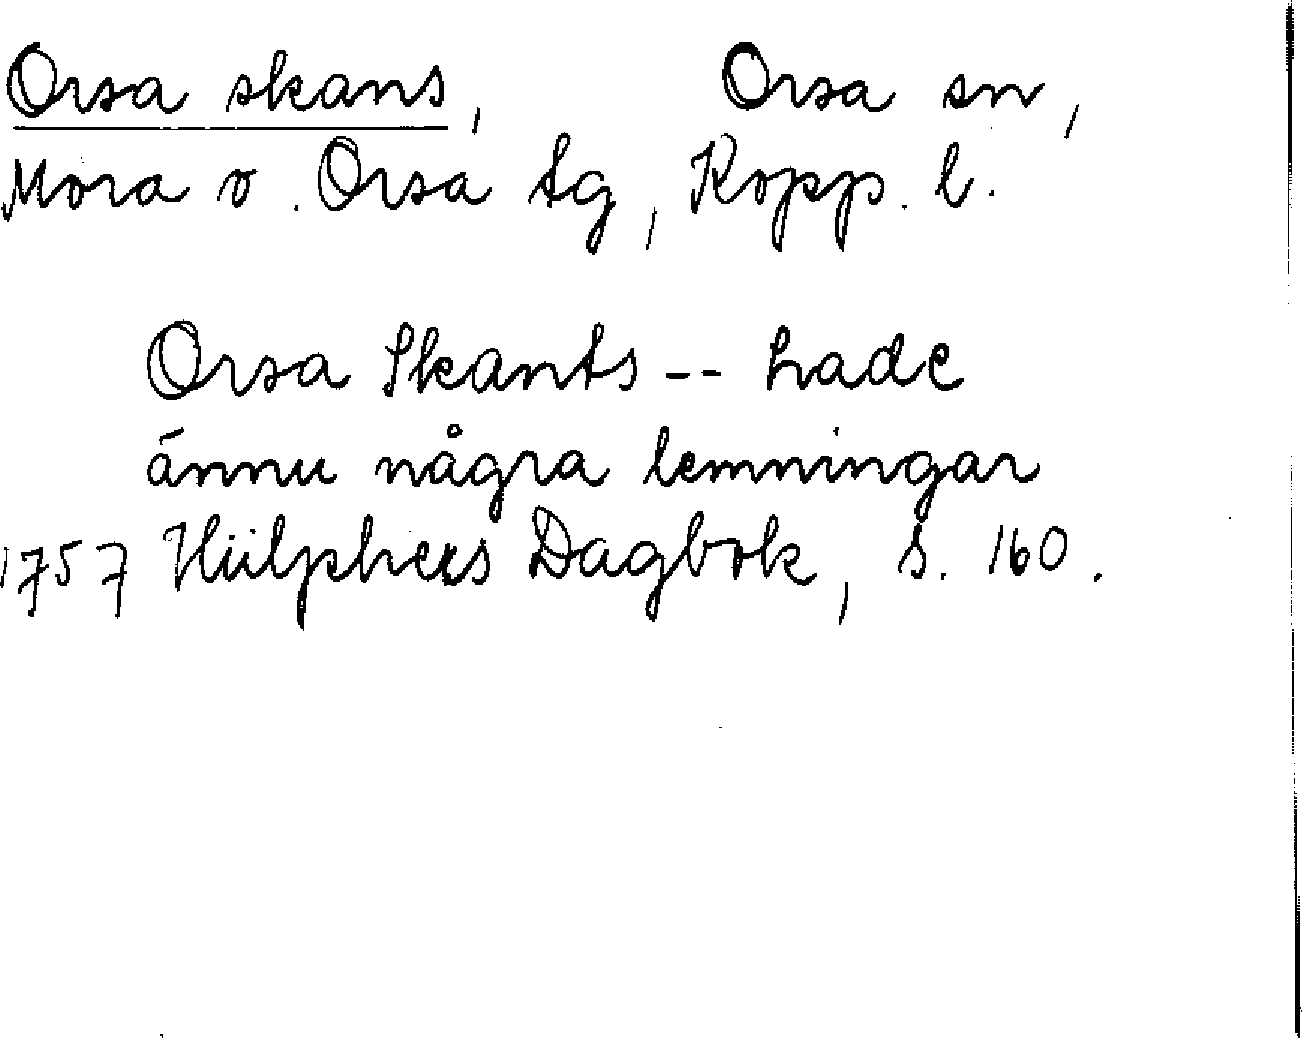 Orsa skans, Orsa sn,
Mora o. Orsa tg, Kopp. l.
Orsa Skants -- hade
ännu några lemningar
1757 Hülphers Dagbok, s. 160.